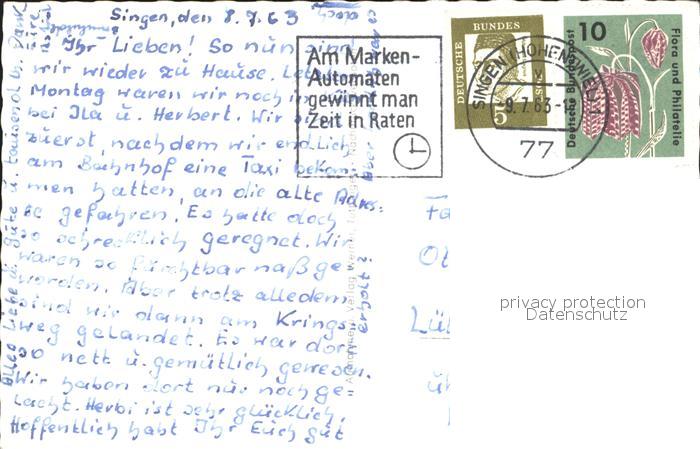 Singen, den 8.7.63
Ihr Lieben! So nun sind
wir wieder zu Hause.
Montag waren wir noch
bei Ila u. Herbert. Wir
zuerst, nachdem wir endlich
am Bahnhof eine Taxi bekom-
men hatten, an die alte Adres-
se gefahren. Es hatte doch
so schrecklich geregnet. Wir
waren so furchtbar naß ge-
worden. Aber trotz alledem
sind wir dann am Krings-
weg gelandet. Es war dort
so nett u. gemütlich gewesen.
Wir haben dort nur noch ge-
lacht. Herbi ist sehr glücklich.
Hoffentlich habt Ihr Euch gut
Alles Liebe u. Güte u. tausend Dank
Am Marken-
Automaten
gewinnt man
Zeit in Raten
DEUTSCHE BUNDESPOST
5
SINGEN (HOHENTWIEL)
9.7.63
77
10
Deutsche Bundespost
Flora und Philatelie
privacy protection
Datenschutz